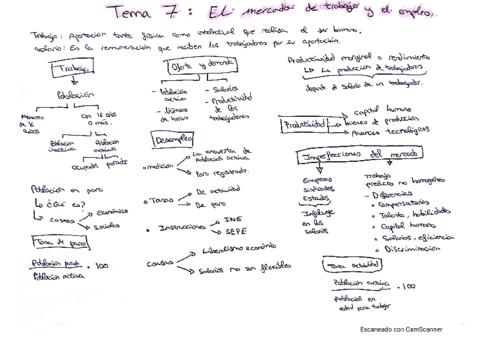 Tema 7: El mercado de trabajo y el empleo.
Trabajo: Aportación tanto física como intelectual que realiza el ser humano,
salario: Es la remuneración que reciben los trabajadores por su aportación.
Trabajo
Población
Menores de 16 años
Con 16 años o más.
Población inactiva
Población activa
ocupados
parados
Población en paro
¿Qué es?
costes
Económicos
Sociales
Tasa de paro
Población parada
Población activa
· 100
Oferta y demanda
- Población activa
- Número de horas
- Salarios
- Productividad de los trabajadores
Desempleo
medición
La encuesta de población activa
Paro registrado.
Tasas
De actividad
De paro
Instituciones
INE
SEPE
causas
Liberalismo económico
Salarios no son flexibles
Productividad marginal o rendimiento
La producción de trabajadores
depende el salario de un trabajador.
Productividad
capital humano
bienes de producción
Avances tecnológicos
Imperfecciones del mercado
Empresas
sindicatos
Estados
Influyen
en los
salarios
Trabajo
producto no homogéneo
- Diferencias
Compensatorias
Talento, habilidades
Capital humano
Salarios, eficiencia
Discriminación
Tasa actividad
Población activa
población en
edad para trabajar
· 100
Escaneado con CamScanner